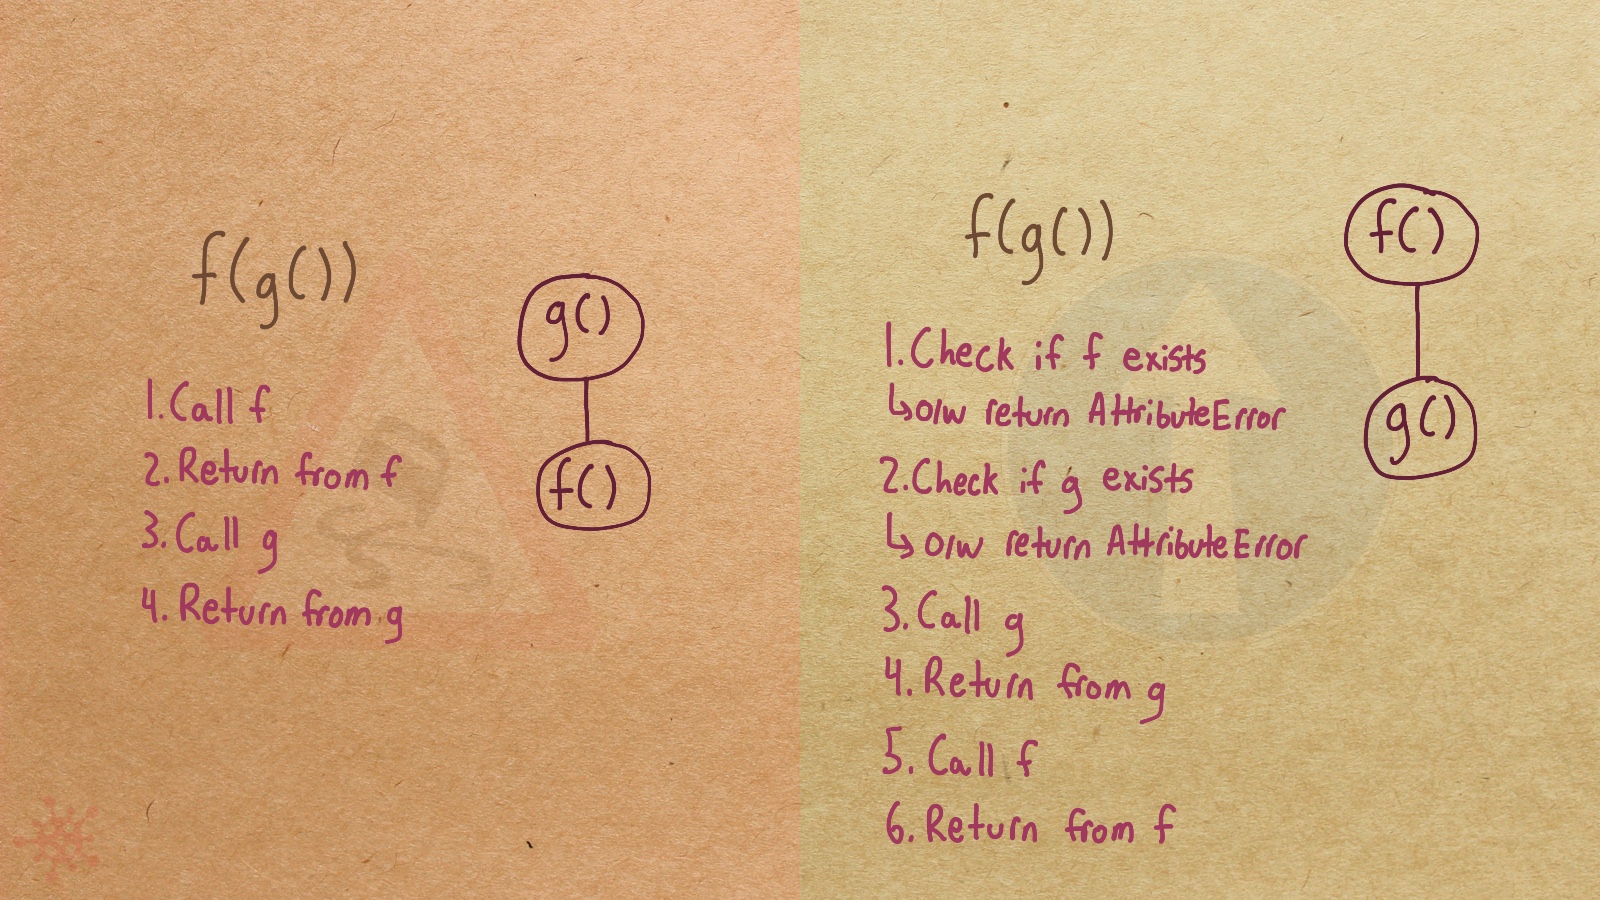 f(g())
1. Call f
2. Return from f
3. Call g
4. Return from g
g()
f()
f(g())
1. Check if f exists
↳ o/w return AttributeError
2. Check if g exists
↳ o/w return AttributeError
3. Call g
4. Return from g
5. Call f
6. Return from f
f()
g()